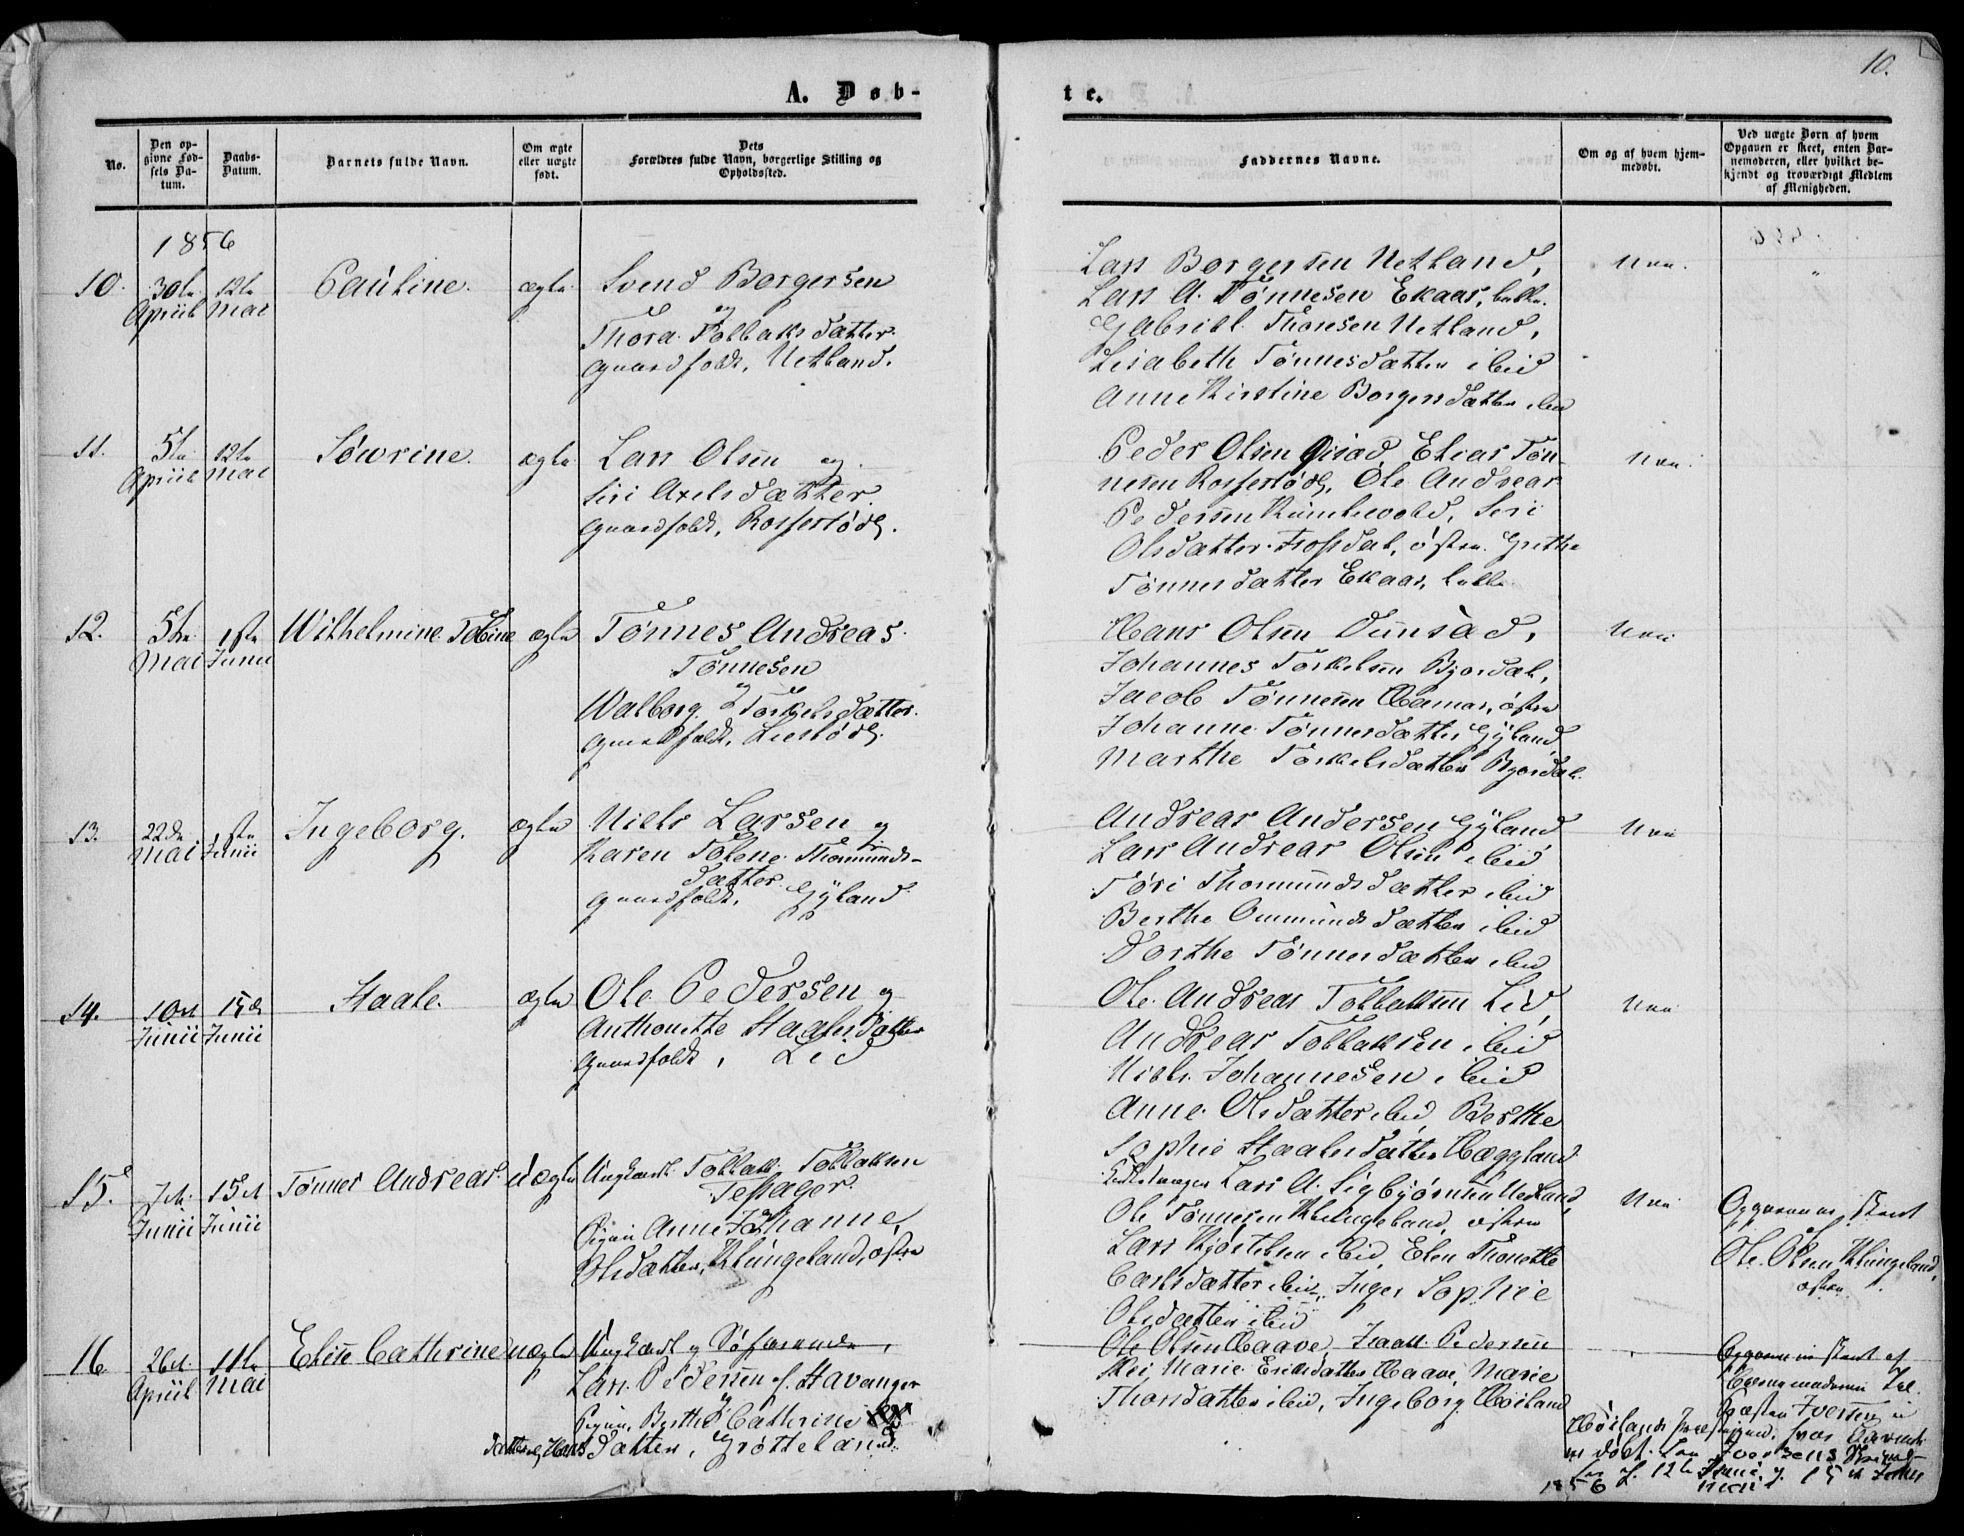 10.
A. Døb-
te.
No.
Den op-
givne Fød-
sels Da-
tum.
Daabs-
Datum.
Barnets fulde Navn.
Om ægte
eller uægte
født.
Dets
Forældres fulde Navn, borgerlige Stilling og
Opholdssted.
Faddernes Navne.
Om og af hvem hjem-
medøbt.
Ved uægte Børn af hvem
Opgaven er skeet, enten Bar-
nemoderen, eller hvilket be-
kjendt og troværdigt Medlem
af Menigheden.
1856
10. 30te 12te Pauline. ægte Svend Borgersen
Apriil Mai og
Thora Tollaksdatter
Gaardfolk, Netland.
Lars Borgersen Netland,
Lars A. Tønnesen Ekaas,
Gabriel Thorsen Netland,
Lisabeth Tønnesdatter ibid
Anne Kirstine Borgersdatter ibid
Nei.
11. 5te 12te Søwrine. ægte Lars Olsen og
Apriil Mai Siri Axelsdatter
Gaardfolk, Rossestøde.
Peder Olsen Elias Tøn-
nesen Ole Andreas
Pedersen Siri
Olsdatter østre Grethe
Tønnesdatter Ekaas,
Nei.
12. 5te 1ste Wilhelmine Tobine ægte Tønnes Andreas
Mai Junii Tønnesen
og
Walborg Torkelsdatter
Gaardfolk,
Hans Olsen
Johannes Torkelsen Bjordal,
Jacob Tønnesen Hamar, østre
Johanne Tønnesdatter Gyland
Marthe Torkelsdatter Bjordal
Nei
13. 22de 1ste Ingeborg. ægte Niels Larsen og
Mai Junii Karen Tolene Thormunds-
datter
Gaardfolk, Gyland
Andreas Andersen Gyland
Lars Andreas Olsen ibid
Tøri Thormundsdatter ibid
Berthe Ommundsdatter ibid
Dorthe Tønnesdatter ibid
Nei
14. 10de 15de Staale. ægte Ole Pedersen og
Junii Junii Anthonette Staalesdatter
Gaardfolk, Lid
Ole Andreas Tollaksen Lid,
Andreas Tollaksen ibid
Niels Johannesen ibid
Anne Olsdatter ibid, Berthe
Sophie Staalesdatter Hæggland
Nei
15. 7de 15de Tønnes Andreas uægte Ungkarl Tollak Tollaksen
Junii Junii
Pigen Anne Johanne
Olsdatter, Klungeland, østre
Lars A. Sigbjørnsen Netland,
Ole Tønnesen Klungeland, østre
Lars Kjøstelsen ibid, Elen Thonette
Carlsdatter ibid, Inger Sophie
Olsdatter ibid
Nei
Opgaven er skeet
af
Ole Olsen Klungeland,
østre
16 26de 11te Elise Cathrine uægte Ungkarl og Søfarende,
Apriil Mai Lars Pedersen af Stavanger
og
Pigen Berthe Cathrine
datter, Grøtteland.
Ole Olsen Haave, Isaak Pedersen
Marie Eriksdatter Haave, Marie
Thorsdatter ibid, Ingeborg Høiland
Opgaven er skeet af
Barnemoderen
Iversen i
Høilands Præstegjeld, hvor Barnet
er døbt. Iversens
af 12te 15de
1856